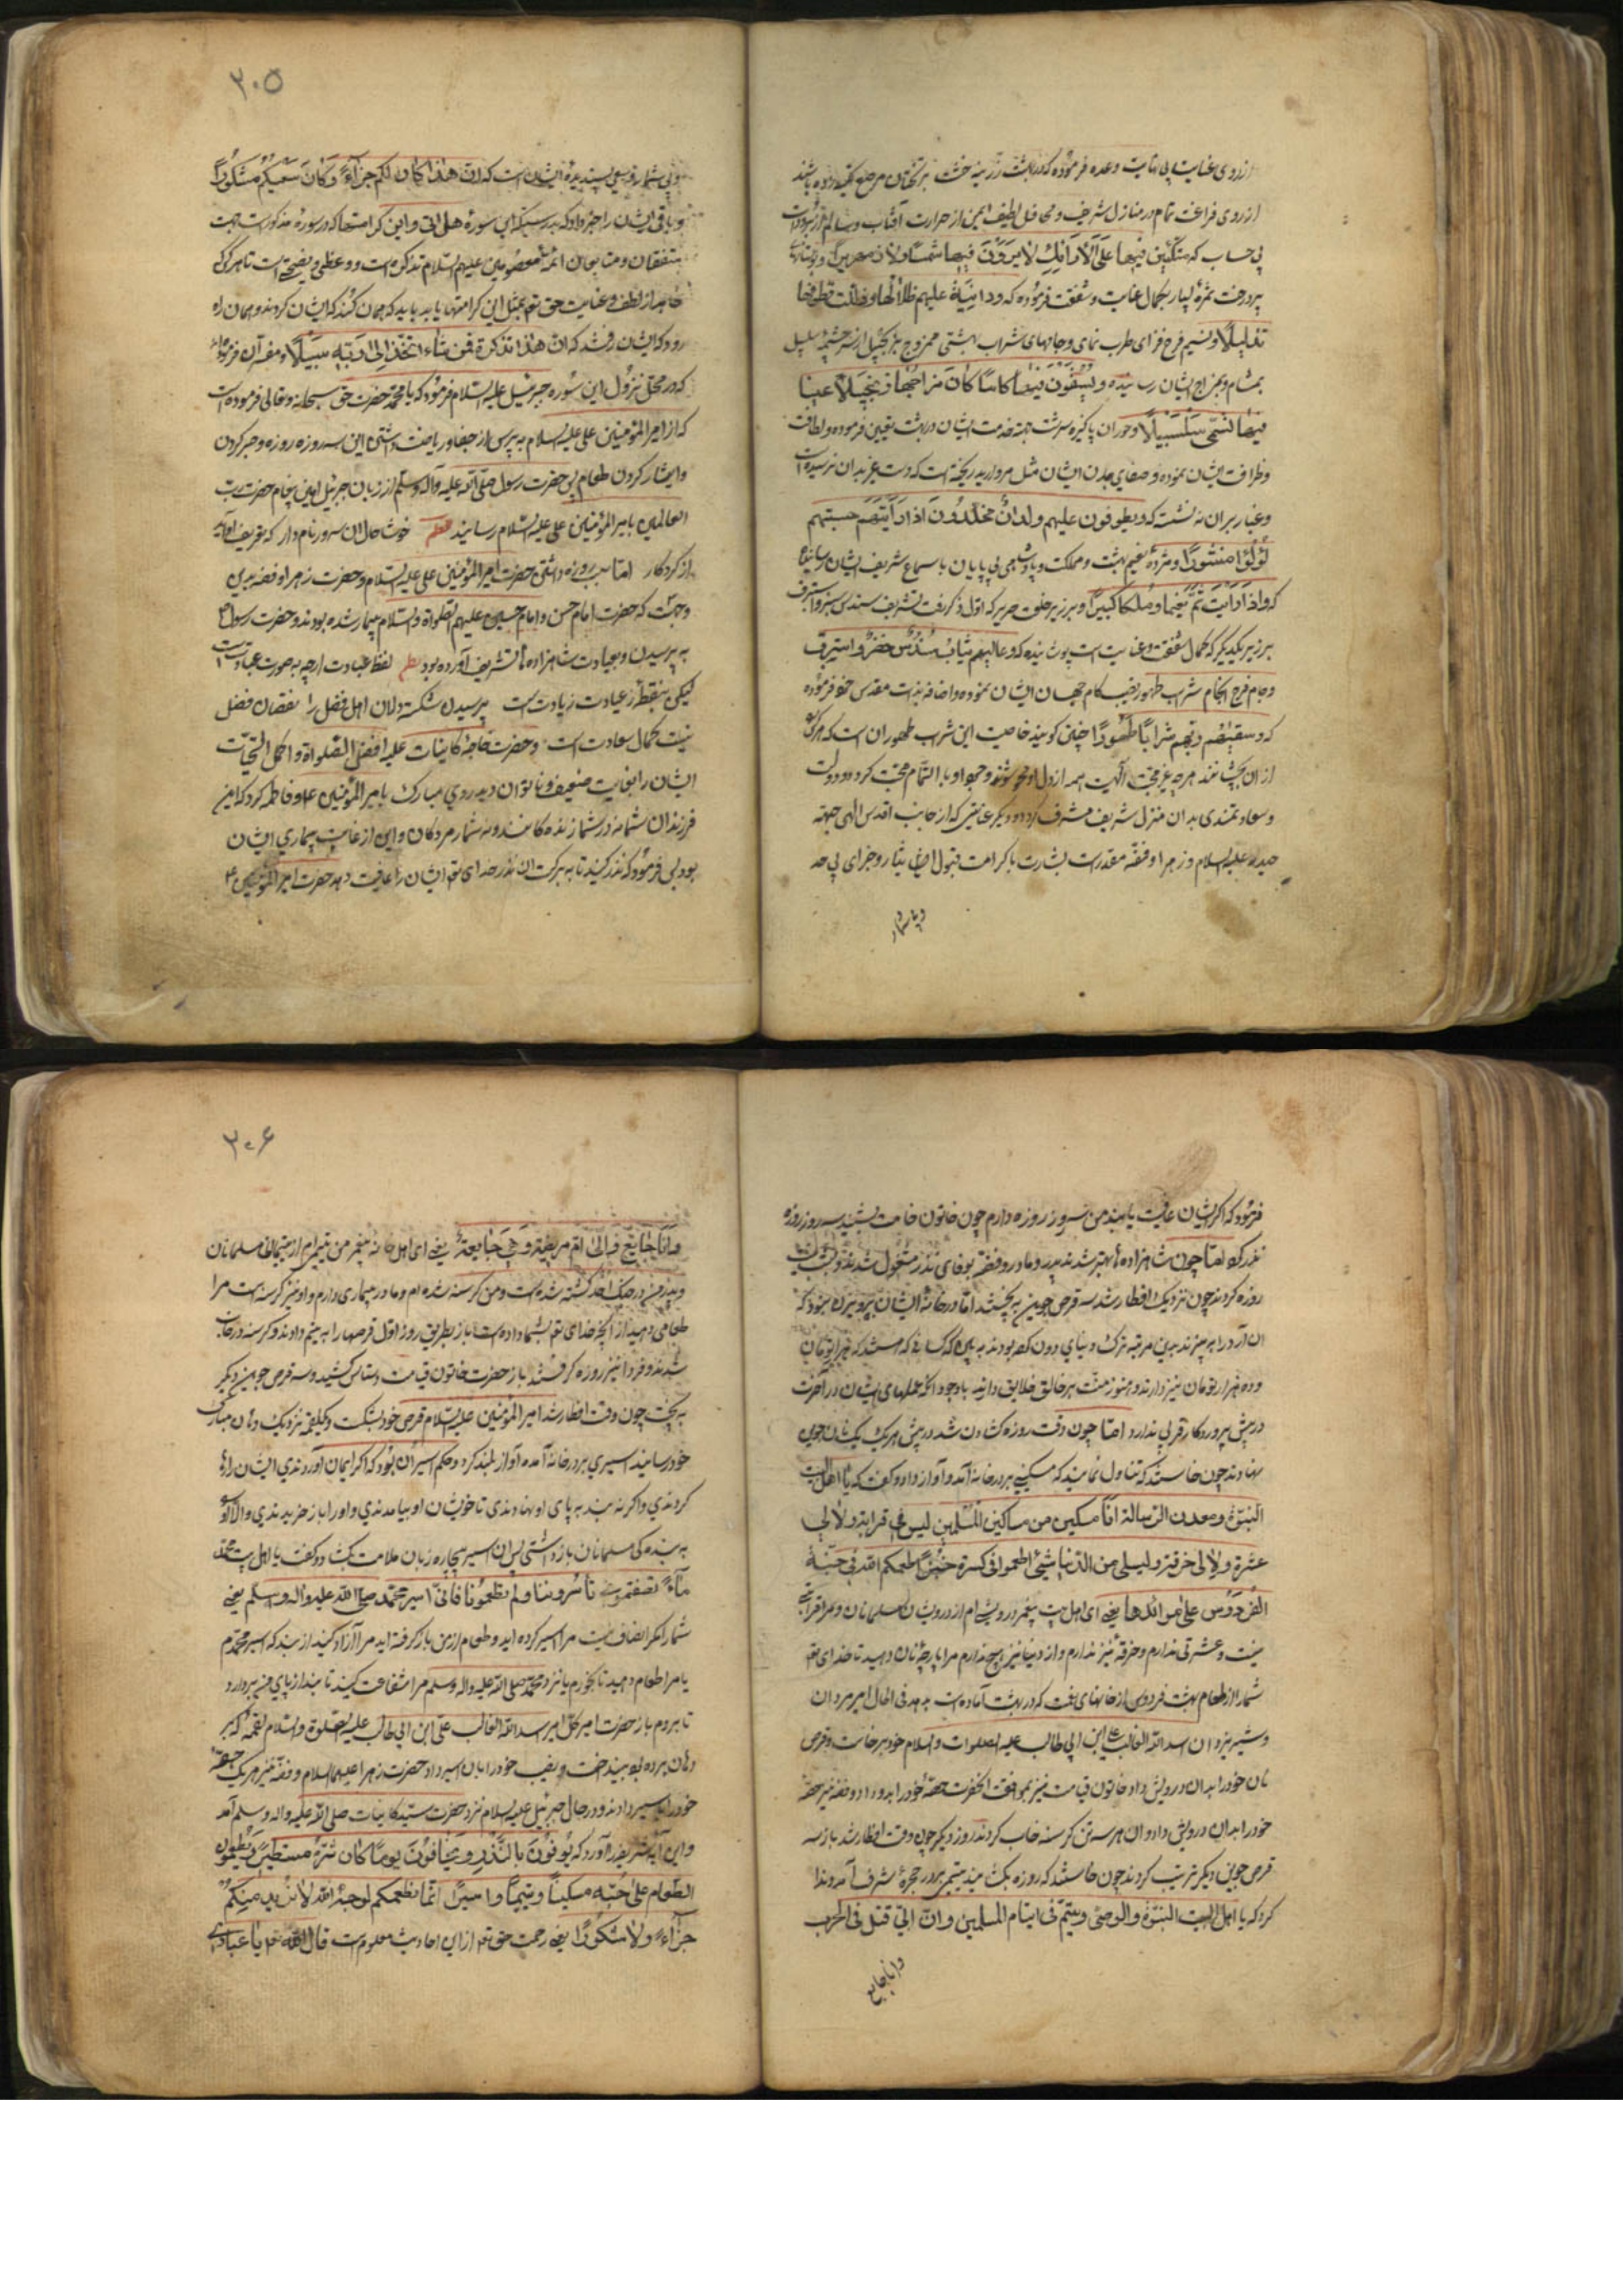 ازروی عنایت بی نهایت وعده فرموده که در بهشت زرینه خشت بر تختهای مرصع تکیه زده باشند
از روی فراغت تمام در منازل شریف و محافل لطیف ایمن از حرارت آفتاب و سالم از برودات
بی حساب که متکئین فیها علی الارائک لا یرون فیها شمسا ولا زمهریرا
پردرخت ثمره بسیار بکمال عنایت و شفقت فرموده که ودانیة علیهم ظلالها وذللت قطوفها
تذلیلا ونسیم فرح فزای طرب نمای وجامهای شراب بهشتی ممزوج بزنجبیل از سرچشمه سلسبیل
بمشام وبمزاج ایشان رسانیده ویسقون فیها کاسا کان مزاجها زنجبیلا عینا
فیها تسمی سلسبیلا وحوران پاکیزه سرشت جهة خدمت ایشان در بهشت تعیین فرموده ولطافت
وظرافت ایشان نموده وصفای بدن ایشان مثل مروارید ریخته است که دست غیر بدان نرسیده است
وغبار بر آن ننشسته که ویطوفون علیهم ولدان مخلدون اذا رایتهم حسبتهم
لؤلؤا منثورا ومژده نعیم بهشت ومملکت وپادشاهی بی پایان باسماع شریف ایشان رسانیده
که واذا رایت ثم رایت نعیما وملکا کبیرا وبر زبر خلعت حریر که اول ذکر رفت تشریف سندس سبز واستبرق
بر زبر یکدیگر که کمال شفقت وعنایت است پوشانیده که وعالیهم ثیاب سندس خضر واستبرق
وجام فرح انجام شراب طهور نصیب کام جهان ایشان نموده واضافه بذات مقدس خود فرموده
که وسقیهم ربهم شرابا طهورا چنین گویند خاصیت این شراب طهور آن است که هرکه
از آن بچشانند هرچه غیر محبت الهیت همه از دل او محو شود وجود او بالتمام محبت گردد ودولت
وسعادتمندی بدان منزل شریف مشرف گردد ودیگر عنایتی که از جانب اقدس الهی جهة
حیدر علیه السلام وزهرا وفضه مقدرست بشارت باکرامت قبول این ایثار وجزای بی حد
وبی شمار
۲۰۵
وبی شمار وسعی پسندیده ایشان است که ان هذا کان لکم جزاء وکان سعیکم مشکورا
وباقی ایشان را خبر داد که بدرستیکه این سوره هل اتی واین کرامتها که در سوره مذکورست جهت
متفقان ومتابعان ائمه معصومین علیهم السلام تذکره است ووعظی ونصیحتی است تا هرکه
خواهد از لطف وعنایت حق تع بمثل این کرامتها یابد باید که همان کند که ایشان کردند وهمان راه
رود که ایشان رفتند که ان هذا تذکرة فمن شاء اتخذ الی ربه سبیلا ومفسران فرموده
که در محل نزول این سوره جبرئیل علیه السلام فرمود که یا محمد حضرت حق سبحانه وتعالی فرموده است
که از امیرالمؤمنین علی علیه السلام بپرس از جفا وریاضت داشتن این سه روزه روزه وصبر کردن
وایثار کردن طعام پس حضرت رسول صلی الله علیه وآله وسلم از زبان جبرئیل امین پیغام حضرت رب
العالمین بامیرالمؤمنین علی علیه السلام رسانید نظم خوش حال آن سرور نام دار که تعریف آید
از کردگار اما سبب روزه داشتن حضرت امیرالمؤمنین علی علیه السلام وحضرت زهرا وفضه بدین
وجهت که حضرت امام حسن وامام حسین علیهم الصلواة والسلام بیمار شده بودند وحضرت رسول
به پرسیدن وبعیادت شاهزاده ها تشریف آورده بود نظم لفظ عیادت ارچه بصورت عبادتست
لیکن بنقطه ز عبادت زیادتست پرسیدن شکسته دلان اهل فضل را نقصان فضل
نیست کمال سعادت است وحضرت خواجه کاینات علیه افضل الصلواة واکمل التحیات
ایشان را بغایت ضعیف وناتوان دید روی مبارک بامیرالمؤمنین ع وفاطمه کرد که این
فرزندان شما نه در شمار زنده کانند ونه شمار مردگان واین از غایت بیماری ایشان
بود پس فرمود که نذر کنید تا به برکت آن نذر خدای تع ایشان را عافیت دهد حضرت امیرالمؤمنین ع
فرمود که اگر ایشان عافیت یابند من سه روز روزه دارم چون خاتون قیامت بشنید سه روز روزه
نذر کرد اما چون شاهزاده ها بهتر شدند پدر ومادر وفضه بوفای نذر مشغول شدند
روزه کردند چون نزدیک افطار شد سه قرص جوین به پختند اما در خانه ایشان پرویزن نبود که
آن آرد را به پرند بدین مرتبه ترک دنیای دون کرده بودند
وده هزار تومان نیز دارند وهنوز منت بر خالق خلایق دارند باوجود آنکه عملهای ایشان در آخرت
در پیش پروردگار قربی ندارد اما چون وقت روزه گشادن شد در پیش هر یک یک نان جوین
نهادند چون خاستند که تناول نمایند که مسکینی بر در خانه آمد وآواز داد وگفت که یا اهل بیت
النبوة ومعدن الرسالة انا مسکین من مساکین المسلمین لیس لی قرابة ولا لی
عشرة ولا لی خرقة ولیس لی من الدنیا شیئ اطعمونی کسرة خبز اطعمکم الله فی جنة
الفردوس علی موائدها یعنی ای اهل بیت پیغمبر درویشی ام از درویشان مسلمانان ومرا قرابتی
نیست وعشرتی ندارم وخرقه نیز ندارم واز دنیا نیز هیچ ندارم مرا پارچه نان دهید تا خدای تع
شما را از طعام بهشت فردوس از خانهای نعمت که در بهشت آماده است بدهد فی الحال امیر مردان
وشیر یزدان اسد الله الغالب علی ابن ابی طالب علیه الصلوات والسلام خود برخاست وقرص
نان خود را بدان درویش داد خاتون قیامت نیز بموافقت آنحضرت حصه خود را بدو داد وفضه نیز حصه
خود را بدان درویش داد وآن هر سه تن گرسنه خواب کردند روز دیگر چون وقت افطار شد باز سه
قرص جوین دیگر ترتیب کردند چون خاستند که روزه بگشایند یتیمی بر در حجره شرف آمد وندا
کرد که یا اهل البیت النبوة والوصی ویتیم فی ایتام المسلمین وان ابی قتل فی الحرب
وانا جایع
۲۰۶
وانا جایع والی ام مریضة وهی جایعة یعنی ای اهل خانه پیغمبر من یتیمی ام از یتیمان مسلمانان
وپدر من در جنگ احد کشته شده است ومن گرسنه شده ام ومادر بیماری دارم واو نیز گرسنه است مرا
طعامی دهید از آنچه خدای تع بشما داده است باز بطریق روز اول قرصها را به یتیم دادند وگرسنه در خواب
شدند وفردا نیز روزه گرفتند باز حضرت خاتون قیامت دستاس کشید وسه قرص جوین دیگر
به پخت چون وقت افطار شد امیرالمؤمنین علیه السلام قرص خود بشکست ویک لقمه نزدیک دهان مبارک
خود رسانید اسیری بر در خانه آمد وآواز بلند کرد وحکم اسیران بود که اگر ایمان آوردندی ایشان را رها
کردندی واگر نه بند به پای او نهادندی تا خویشان او بیامدندی واو را باز خریدندی والا او
به بنده کی مسلمانان باز داشتی پس آن اسیر بیچاره زبان ملامت بگشاد وگفت یا اهل بیت محمد
ماء نصفتمونی تأسروننا ولم تطعمونا فانی اسیر محمد صلی الله علیه واله وسلم یعنی
شما را مگر انصاف نیست مرا اسیر کرده اید وطعام از من باز گرفته اید مرا آزاد کنید از بند که اسیر محمدم
یا مرا طعام دهید تا بخورم یا نزد محمد صلی الله علیه واله وسلم مرا شفاعت کنید تا بند از پای من بردارد
تا بروم باز حضرت امیر کل امیر اسد الله الغالب علی ابن ابی طالب علیه الصلوة والسلام لقمه که بر
دهان برده بود بینداخت ونصیب خود را بآن اسیر داد حضرت زهرا علیها السلام وفضه نیز هر یک حصه
خود را باسیر دادند ودر حال جبرئیل علیه السلام نزد حضرت سید کاینات صلی الله علیه واله وسلم آمد
واین آیه شریفه را آورد که یوفون بالنذر ویخافون یوما کان شره مستطیرا ویطعمون
الطعام علی حبه مسکینا ویتیما واسیرا انما نطعمکم لوجه الله لا نرید منکم
جزاء ولا شکورا یعنی رحمت حق تع از این احادیث معلوم است قال الله تع یا عبادی